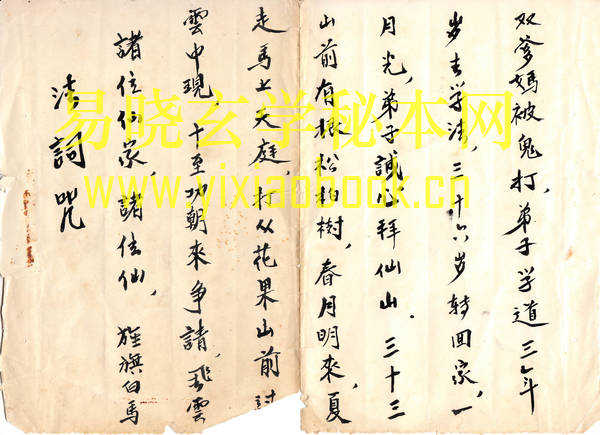 法詞咒
諸位仙家，諸位仙，旌旗白馬
雲中現，十至功朝來争請，飛雲
走馬上天庭，打从花果山前討
山前有根松柏樹，春月明來，夏
月光，弟子誠心拜仙山．三十三
岁去学法，三十六岁转回家，一
双爹媽被鬼打，弟子学道三年
易晓玄学秘本网
www.yixiaobook.cn